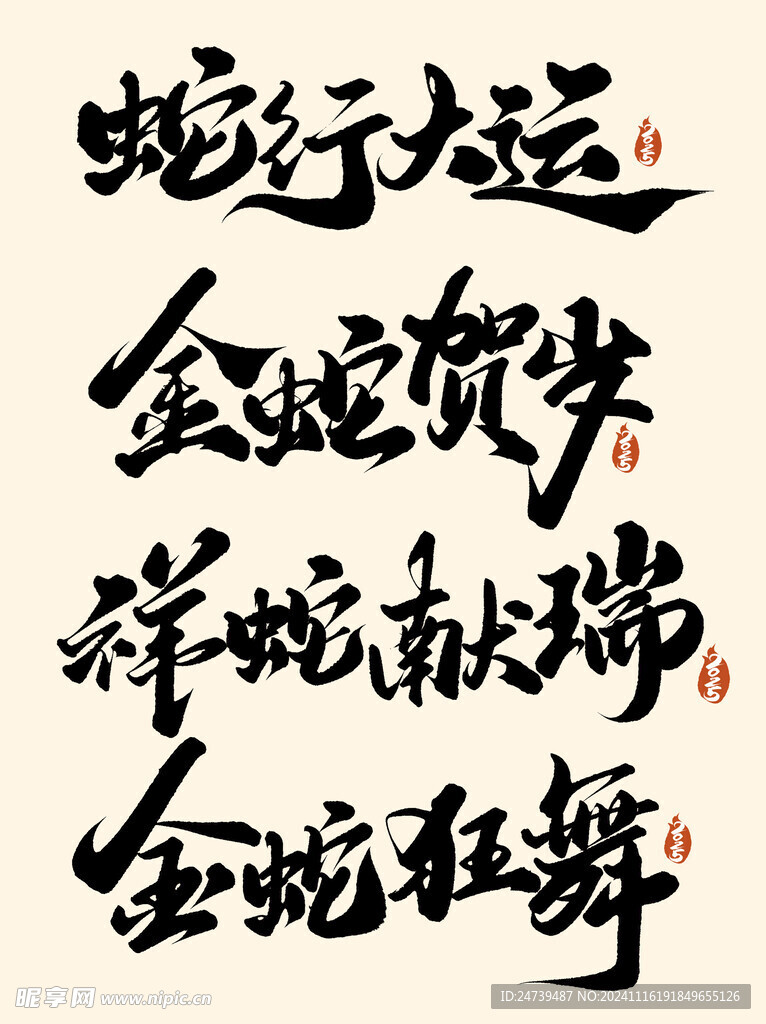 蛇行大运
2025
金蛇贺岁
2025
祥蛇献瑞
2025
金蛇狂舞
2025
昵享网 www.nipic.cn
ID:24739487 NO:20241116191849655126